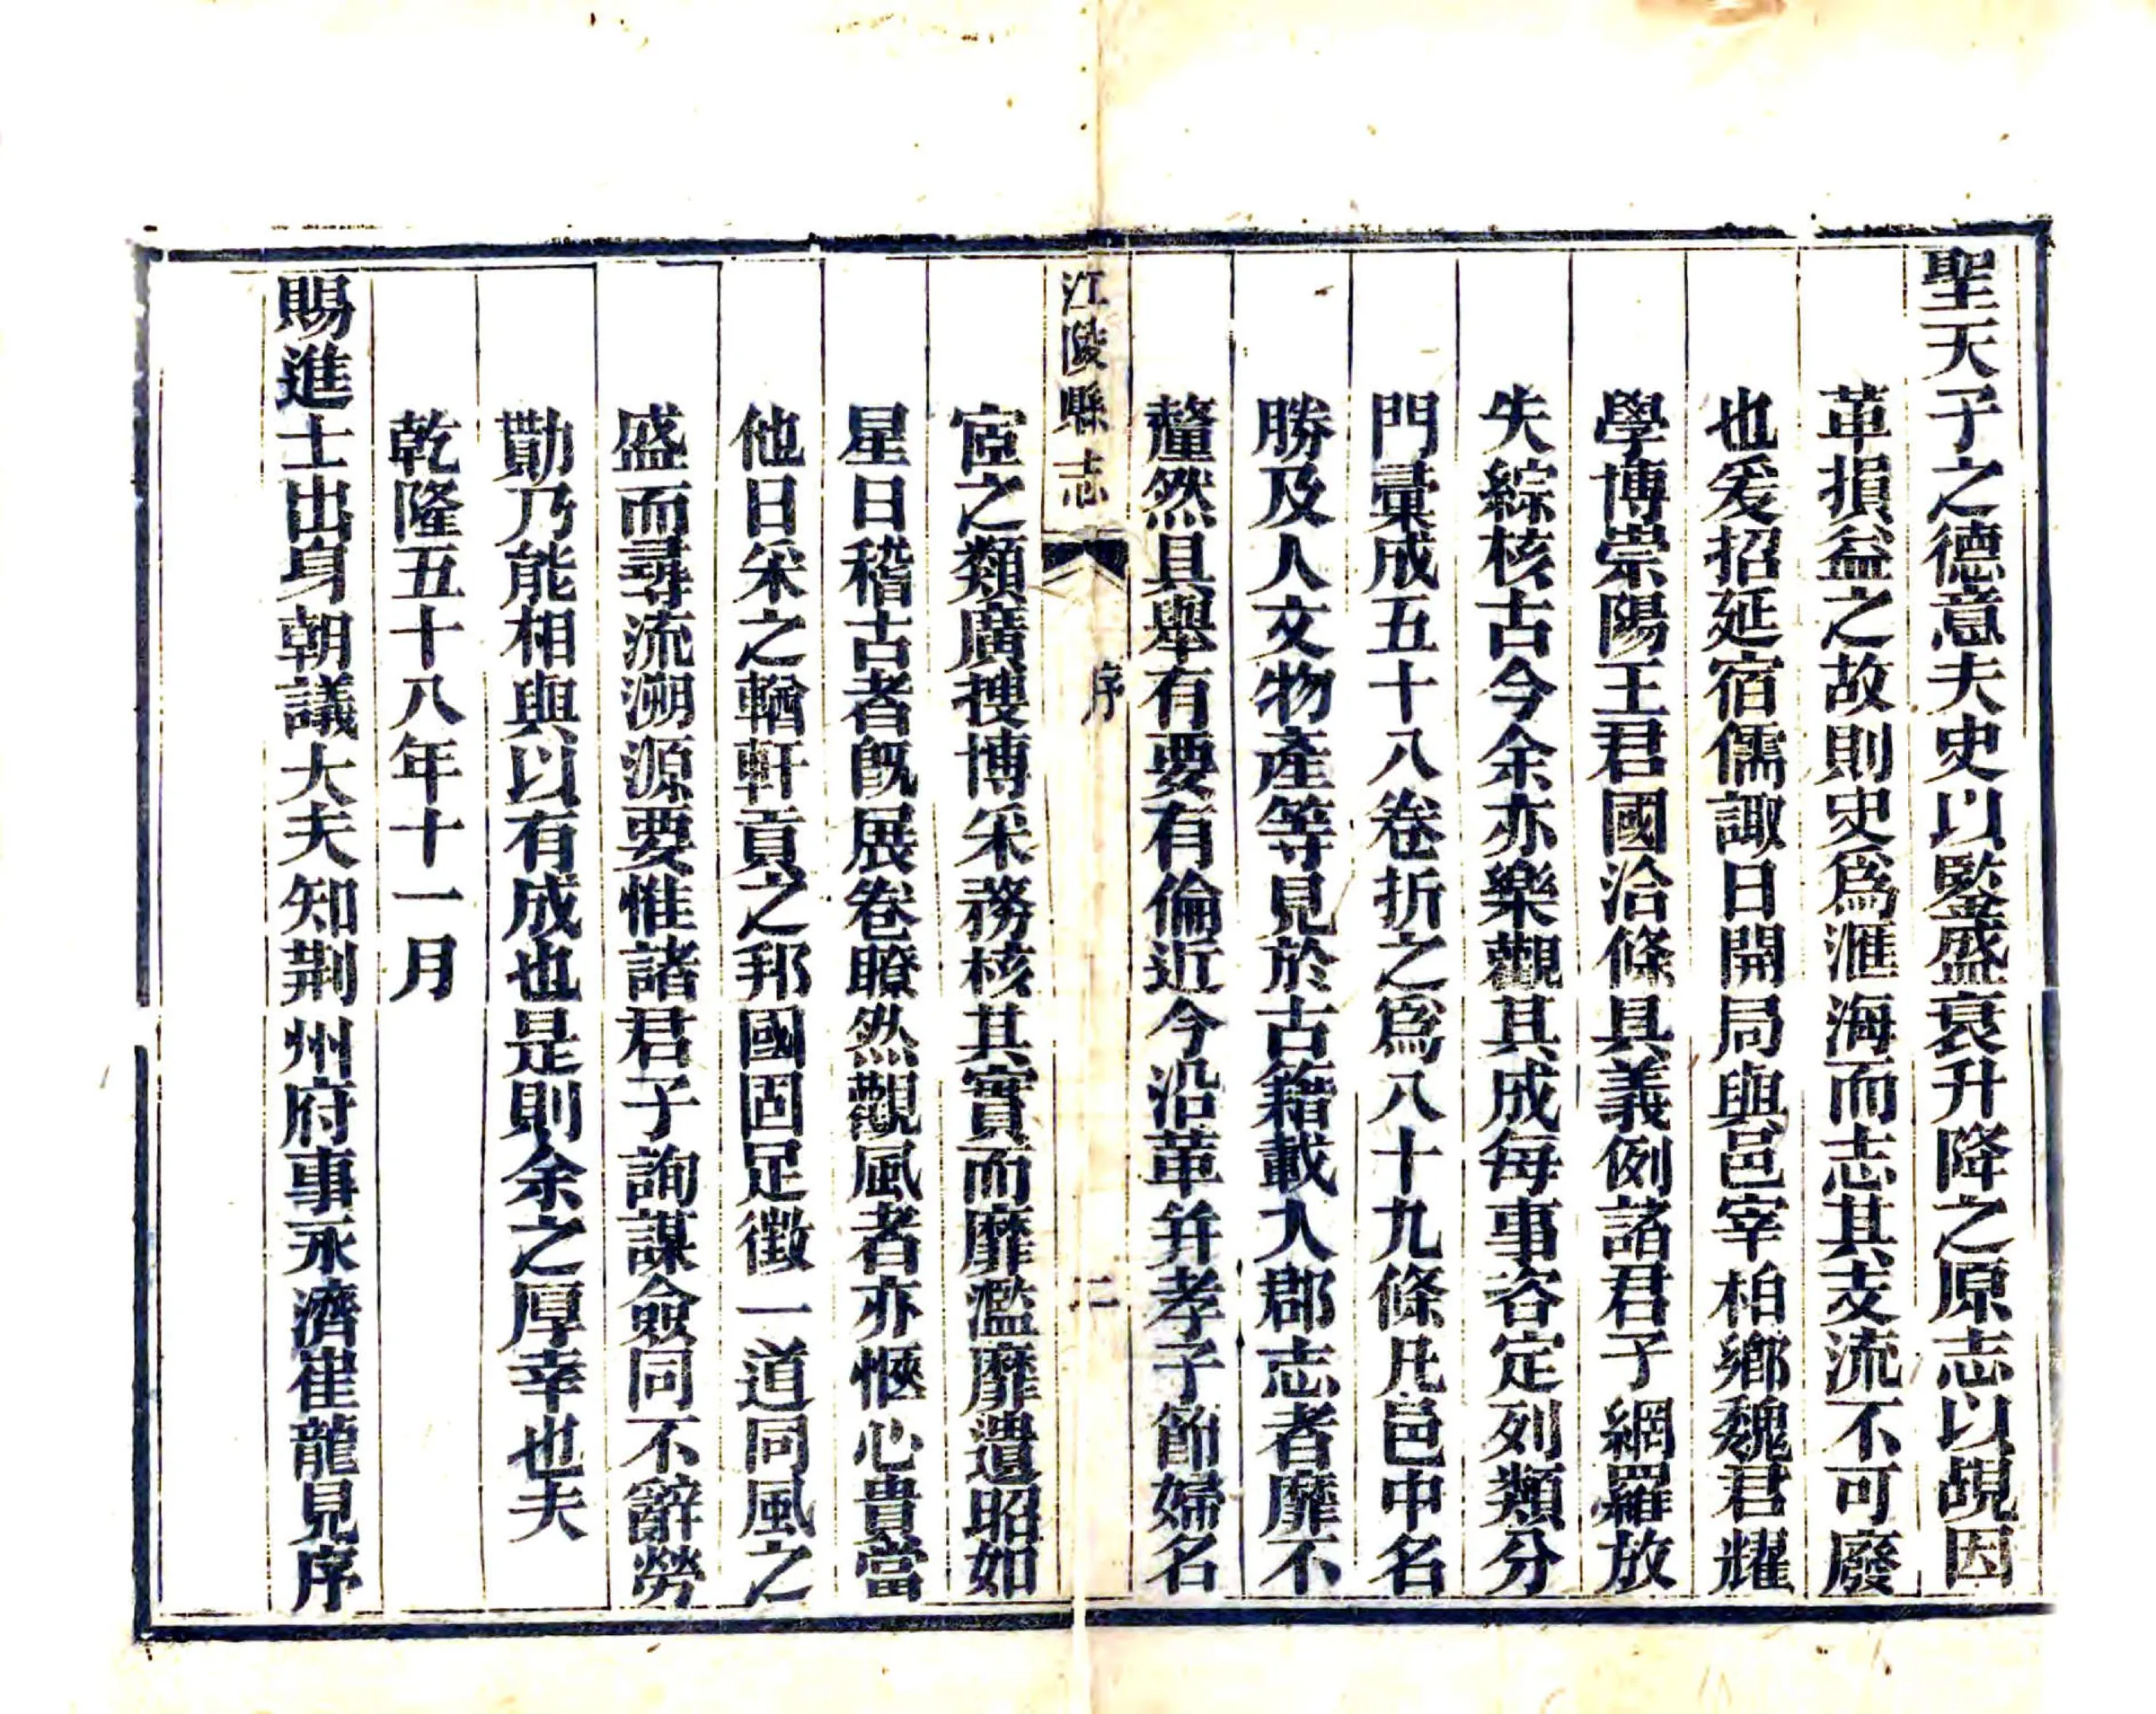 聖天子之德意夫史以鑒盛衰升降之原志以覘因
革損益之故則史爲滙海而志其支流不可廢
也爰招延宿儒諏日開局與邑宰柏鄉魏君耀
學博崇陽王君國洽條具義例諸君子網羅放
失綜核古今余亦樂觀其成每事咨定列類分
門彙成五十八卷折之爲八十九條凡邑中名
勝及人文物產等見於古籍載入郡志者靡不
釐然具舉有要有倫近今沿革并孝子節婦名
江陵縣志
序
二
宦之類廣搜博采務核其實而靡濫靡遺昭如
星日稽古者旣展卷瞭然觀風者亦愜心貴當
他日采之輶軒貢之邦國固足徵一道同風之
盛而尋流溯源要惟諸君子詢謀僉同不辭勞
勩乃能相與以有成也是則余之厚幸也夫
乾隆五十八年十一月
賜進士出身朝議大夫知荆州府事永濟崔龍見序